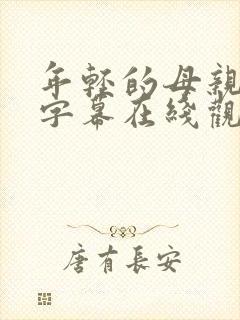 年轻的母親
字幕在綫觀
唐有長安